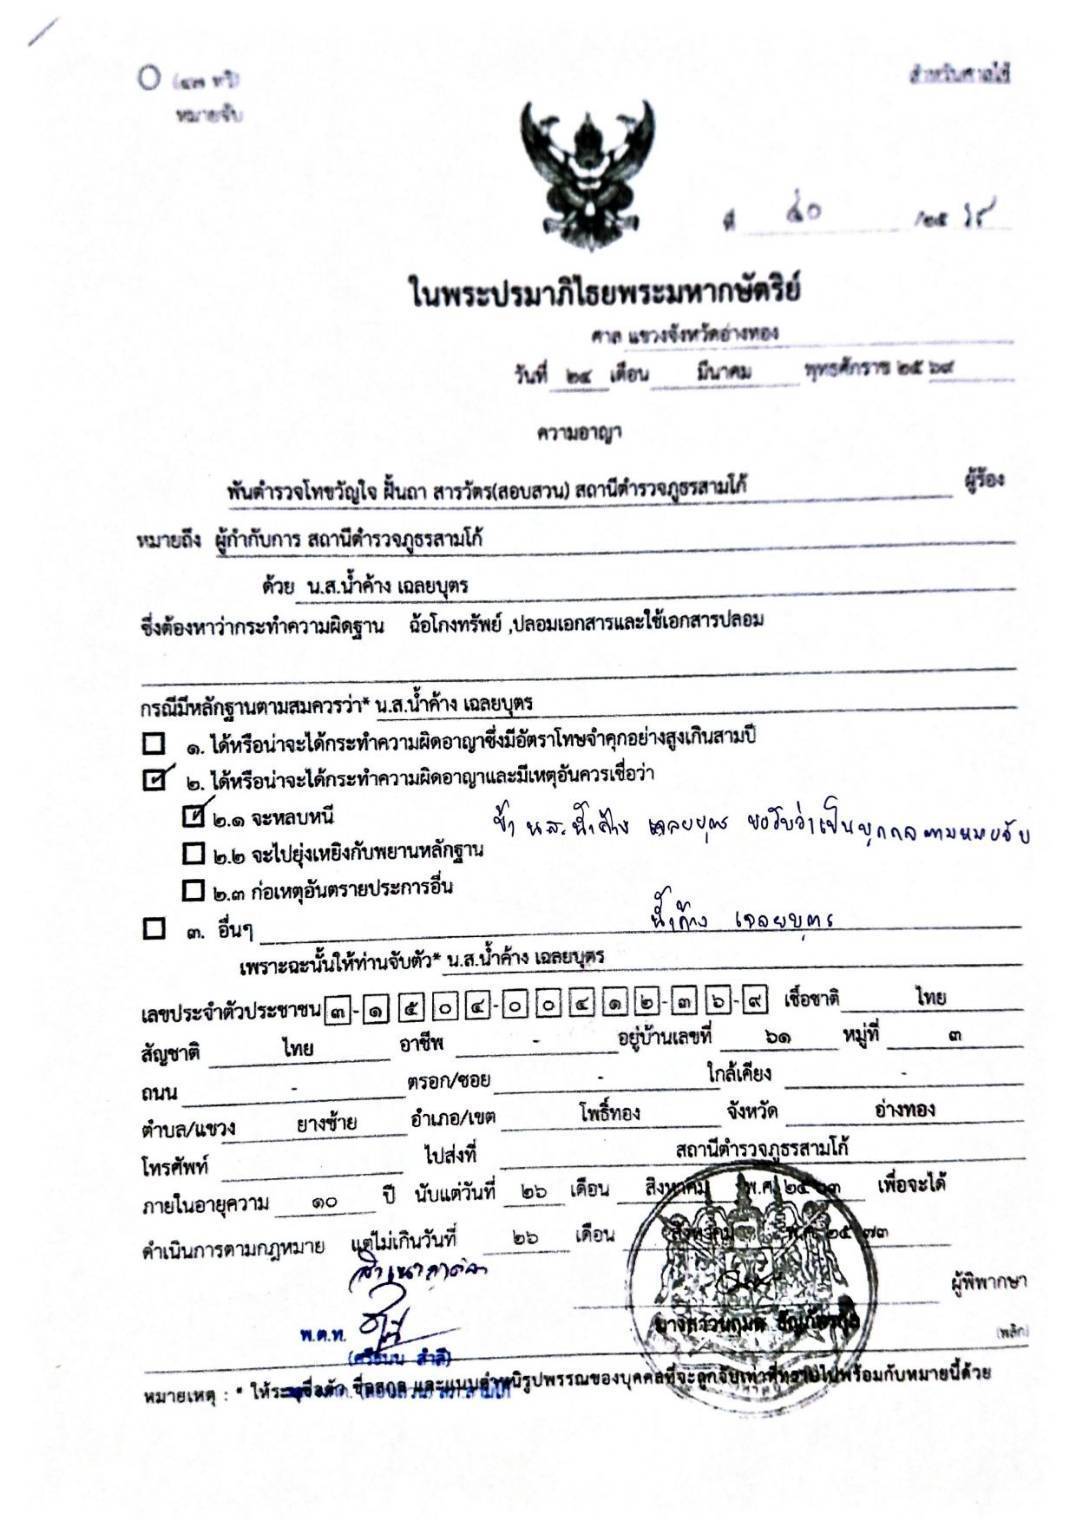 (๔๗ ทวิ)
สำหรับศาลใช้
หมายจับ
ที่ ๔๐ /๒๕ ๖๙
ในพระปรมาภิไธยพระมหากษัตริย์
ศาล แขวงจังหวัดอ่างทอง
วันที่ ๒๔ เดือน มีนาคม พุทธศักราช ๒๕ ๖๙
ความอาญา
พันตำรวจโทขวัญใจ ฝั้นถา สารวัตร(สอบสวน) สถานีตำรวจภูธรสามโก้ ผู้ร้อง
หมายถึง ผู้กำกับการ สถานีตำรวจภูธรสามโก้
ด้วย น.ส.น้ำค้าง เฉลยบุตร
ซึ่งต้องหาว่ากระทำความผิดฐาน ฉ้อโกงทรัพย์ ,ปลอมเอกสารและใช้เอกสารปลอม
กรณีมีหลักฐานตามสมควรว่า* น.ส.น้ำค้าง เฉลยบุตร
๑. ได้หรือน่าจะได้กระทำความผิดอาญาซึ่งมีอัตราโทษจำคุกอย่างสูงเกินสามปี
๒. ได้หรือน่าจะได้กระทำความผิดอาญาและมีเหตุอันควรเชื่อว่า
๒.๑ จะหลบหนี ข้า น.ส.น้ำค้าง เฉลยบุตร ขอรับว่าเป็นบุคคลตามหมายจับ
๒.๒ จะไปยุ่งเหยิงกับพยานหลักฐาน
๒.๓ ก่อเหตุอันตรายประการอื่น
๓. อื่นๆ น้ำค้าง เฉลยบุตร
เพราะฉะนั้นให้ท่านจับตัว* น.ส.น้ำค้าง เฉลยบุตร
เลขประจำตัวประชาชน ๓-๑๕๐๔-๐๐๔๑๒-๓๖-๙ เชื้อชาติ ไทย
สัญชาติ ไทย อาชีพ - อยู่บ้านเลขที่ ๖๑ หมู่ที่ ๓
ถนน - ตรอก/ซอย - ใกล้เคียง -
ตำบล/แขวง ยางซ้าย อำเภอ/เขต โพธิ์ทอง จังหวัด อ่างทอง
โทรศัพท์ ไปส่งที่ สถานีตำรวจภูธรสามโก้
ภายในอายุความ ๑๐ ปี นับแต่วันที่ ๒๖ เดือน สิงหาคม พ.ศ. ๒๕ ๖๓ เพื่อจะได้
ดำเนินการตามกฎหมาย แต่ไม่เกินวันที่ ๒๖ เดือน สิงหาคม พ.ศ. ๒๕ ๗๓
สำเนาถูกต้อง
ผู้พิพากษา
พ.ต.ท.
(พลิก)
หมายเหตุ : * ให้ระบุชื่อตัว ชื่อสกุล และแนบตำหนิรูปพรรณของบุคคลที่จะถูกจับเท่าที่ทราบไปพร้อมกับหมายนี้ด้วย